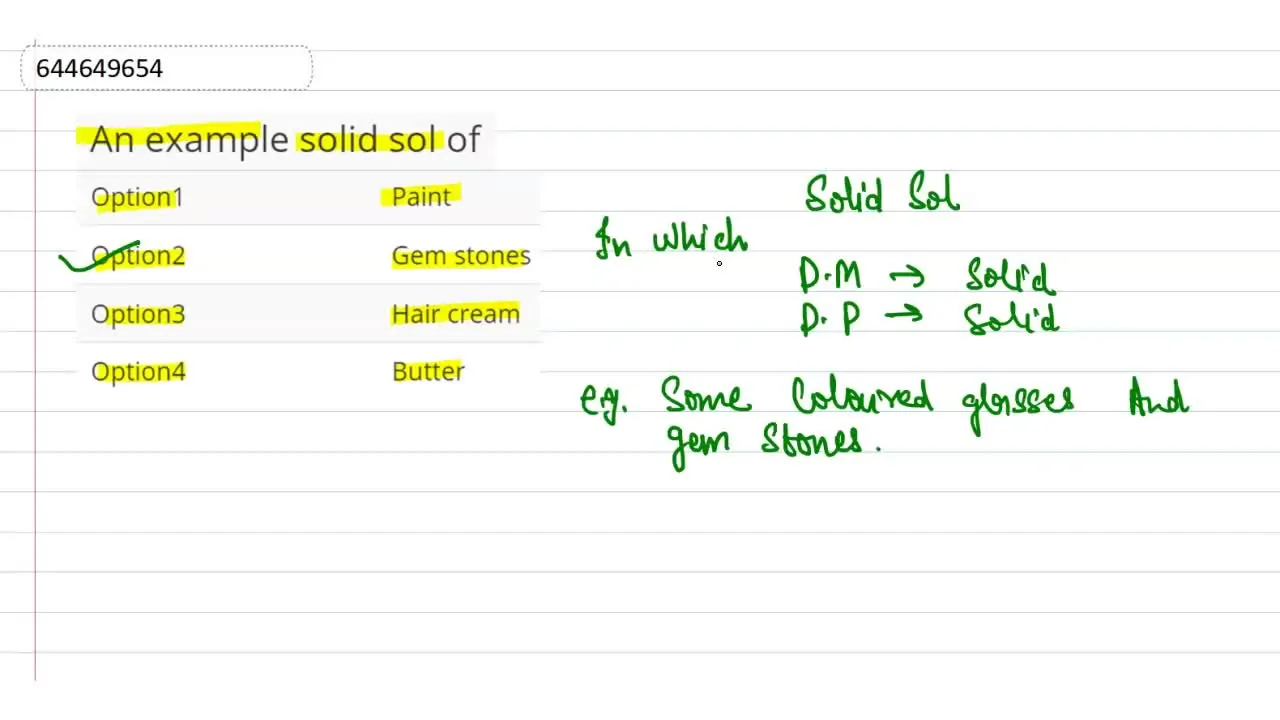 644649654
An example solid sol of
Option1 Paint
Option2 Gem stones
Option3 Hair cream
Option4 Butter
Solid Sol
In which
D.M → Solid
D.P → Solid
e.g. Some Coloured glasses And
gem Stones.